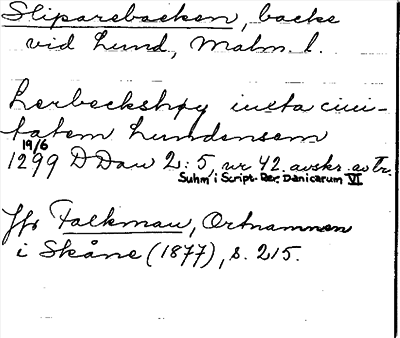 Sliparebacken, backe
vid Lund, Malm. l.
Lerbeckshøy iuxta ciui-
tatem Lundensem
19/6
1299 DDan 2:5 nr 42. avskr. av tr.
Suhm i Script. Rer. Danicarum VI
Jfr Falkman, Ortnamnen
i Skåne (1877), s. 215.